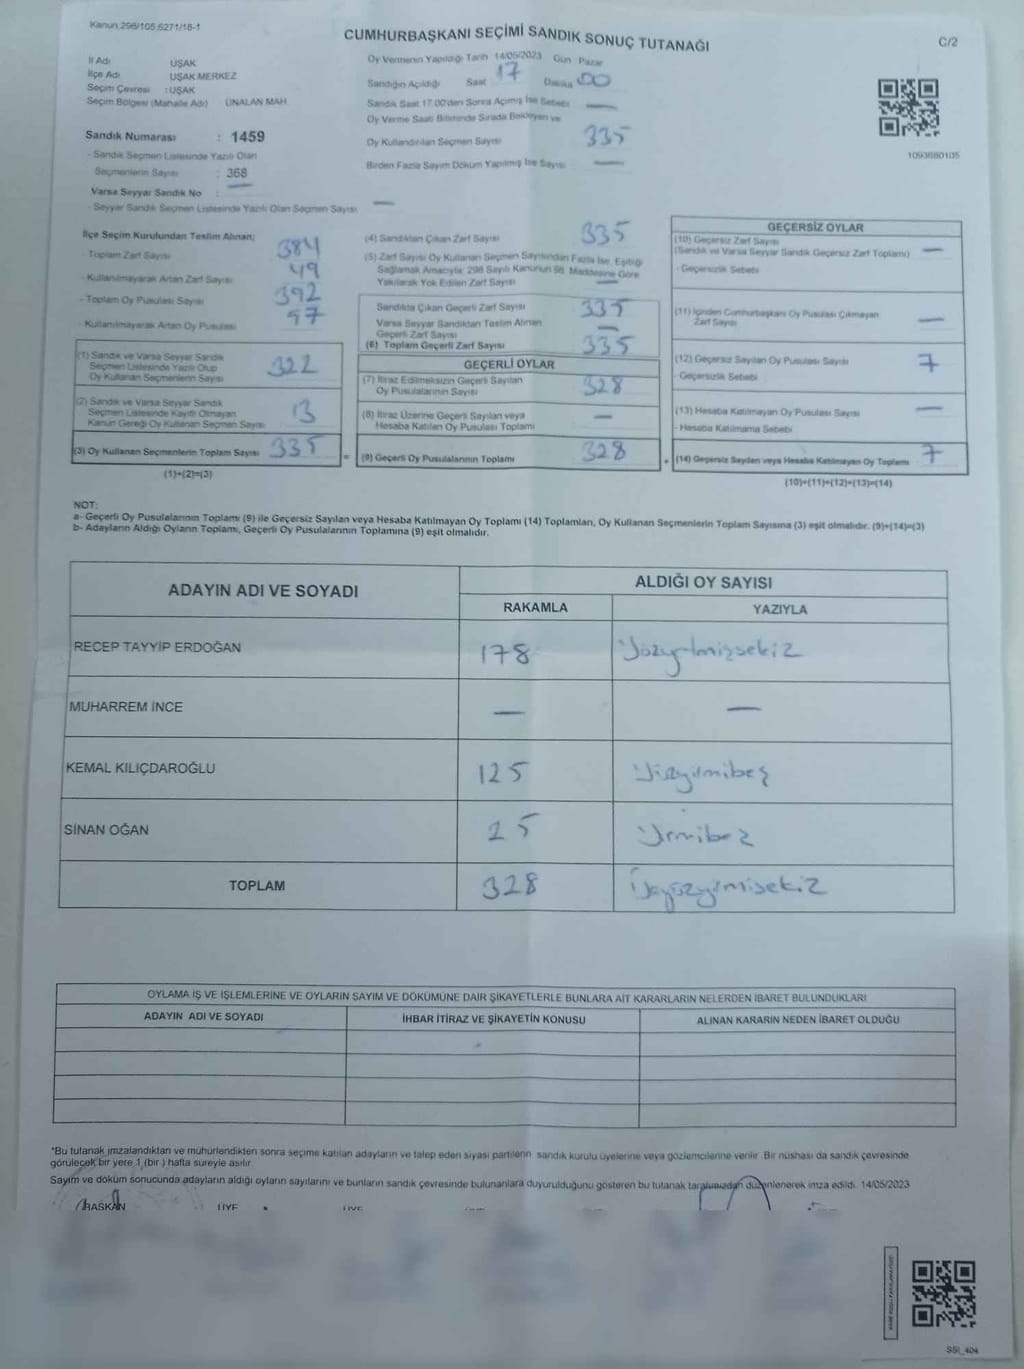 Kanun 298/105,6271/16-1
CUMHURBAŞKANI SEÇİMİ SANDIK SONUÇ TUTANAĞI
C/2
İl Adı UŞAK
İlçe Adı UŞAK MERKEZ
Seçim Çevresi : UŞAK
Seçim Bölgesi (Mahalle Adı) ÜNALAN MAH.
Sandık Numarası : 1459
- Sandık Seçmen Listesinde Yazılı Olan
Seçmenlerin Sayısı : 368
Varsa Seyyar Sandık No : —
- Seyyar Sandık Seçmen Listesinde Yazılı Olan Seçmen Sayısı —
Oy Vermenin Yapıldığı Tarih 14/05/2023 Gün Pazar
Sandığın Açıldığı Saat 17 Dakika 00
Sandık Saat 17.00'den Sonra Açılmış İse Sebebi —
Oy Verme Saati Bitiminde Sırada Bekleyen ve
Oy Kullandırılan Seçmen Sayısı 335
Birden Fazla Sayım Döküm Yapılmış İse Sayısı —
1093660105
İlçe Seçim Kurulundan Teslim Alınan;
- Toplam Zarf Sayısı 384
- Kullanılmayarak Artan Zarf Sayısı 49
- Toplam Oy Pusulası Sayısı 392
- Kullanılmayarak Artan Oy Pusulası 57
(1) Sandık ve Varsa Seyyar Sandık
Seçmen Listesinde Yazılı Olup
Oy Kullanan Seçmenlerin Sayısı 322
(2) Sandık ve Varsa Seyyar Sandık
Seçmen Listesinde Kayıtlı Olmayan
Kanun Gereği Oy Kullanan Seçmen Sayısı 13
(3) Oy Kullanan Seçmenlerin Toplam Sayısı 335 =
(1)+(2)=(3)
(4) Sandıktan Çıkan Zarf Sayısı 335
(5) Zarf Sayısı Oy Kullanan Seçmen Sayısından Fazla İse, Eşitliği
Sağlamak Amacıyla; 298 Sayılı Kanunun 98. Maddesine Göre
Yakılarak Yok Edilen Zarf Sayısı —
Sandıkta Çıkan Geçerli Zarf Sayısı 335
Varsa Seyyar Sandıktan Teslim Alınan
Geçerli Zarf Sayısı —
(6) Toplam Geçerli Zarf Sayısı 335
GEÇERLİ OYLAR
(7) İtiraz Edilmeksizin Geçerli Sayılan
Oy Pusulalarının Sayısı 328
(8) İtiraz Üzerine Geçerli Sayılan veya
Hesaba Katılan Oy Pusulası Toplamı —
(9) Geçerli Oy Pusulalarının Toplamı 328 +
GEÇERSİZ OYLAR
(10) Geçersiz Zarf Sayısı —
(Sandık ve Varsa Seyyar Sandık Geçersiz Zarf Toplamı)
- Geçersizlik Sebebi
(11) İçinden Cumhurbaşkanı Oy Pusulası Çıkmayan
Zarf Sayısı —
(12) Geçersiz Sayılan Oy Pusulası Sayısı 7
- Geçersizlik Sebebi
(13) Hesaba Katılmayan Oy Pusulası Sayısı —
- Hesaba Katılmama Sebebi
(14) Geçersiz Sayılan veya Hesaba Katılmayan Oy Toplamı 7
(10)+(11)+(12)+(13)=(14)
NOT:
a- Geçerli Oy Pusulalarının Toplamı (9) ile Geçersiz Sayılan veya Hesaba Katılmayan Oy Toplamı (14) Toplamları, Oy Kullanan Seçmenlerin Toplam Sayısına (3) eşit olmalıdır. (9)+(14)=(3)
b- Adayların Aldığı Oyların Toplamı, Geçerli Oy Pusulalarının Toplamına (9) eşit olmalıdır.
ADAYIN ADI VE SOYADI
ALDIĞI OY SAYISI
RAKAMLA YAZIYLA
RECEP TAYYİP ERDOĞAN 178 Yüzyetmişsekiz
MUHARREM İNCE — —
KEMAL KILIÇDAROĞLU 125 Yüzyirmibeş
SİNAN OĞAN 25 Yirmibeş
TOPLAM 328 Üçyüzyirmisekiz
OYLAMA İŞ VE İŞLEMLERİNE VE OYLARIN SAYIM VE DÖKÜMÜNE DAİR ŞİKAYETLERLE BUNLARA AİT KARARLARIN NELERDEN İBARET BULUNDUKLARI
ADAYIN ADI VE SOYADI İHBAR İTİRAZ VE ŞİKAYETİN KONUSU ALINAN KARARIN NEDEN İBARET OLDUĞU
*Bu tutanak imzalandıktan ve mühürlendikten sonra seçime katılan adayların ve talep eden siyasi partilerin sandık kurulu üyelerine veya gözlemcilerine verilir. Bir nüshası da sandık çevresinde
görülecek bir yere 1 (bir) hafta süreyle asılır.
Sayım ve döküm sonucunda adayların aldığı oyların sayılarını ve bunların sandık çevresinde bulunanlara duyurulduğunu gösteren bu tutanak tarafımızdan düzenlenerek imza edildi. 14/05/2023
BAŞKAN ÜYE ÜYE
SSI_404